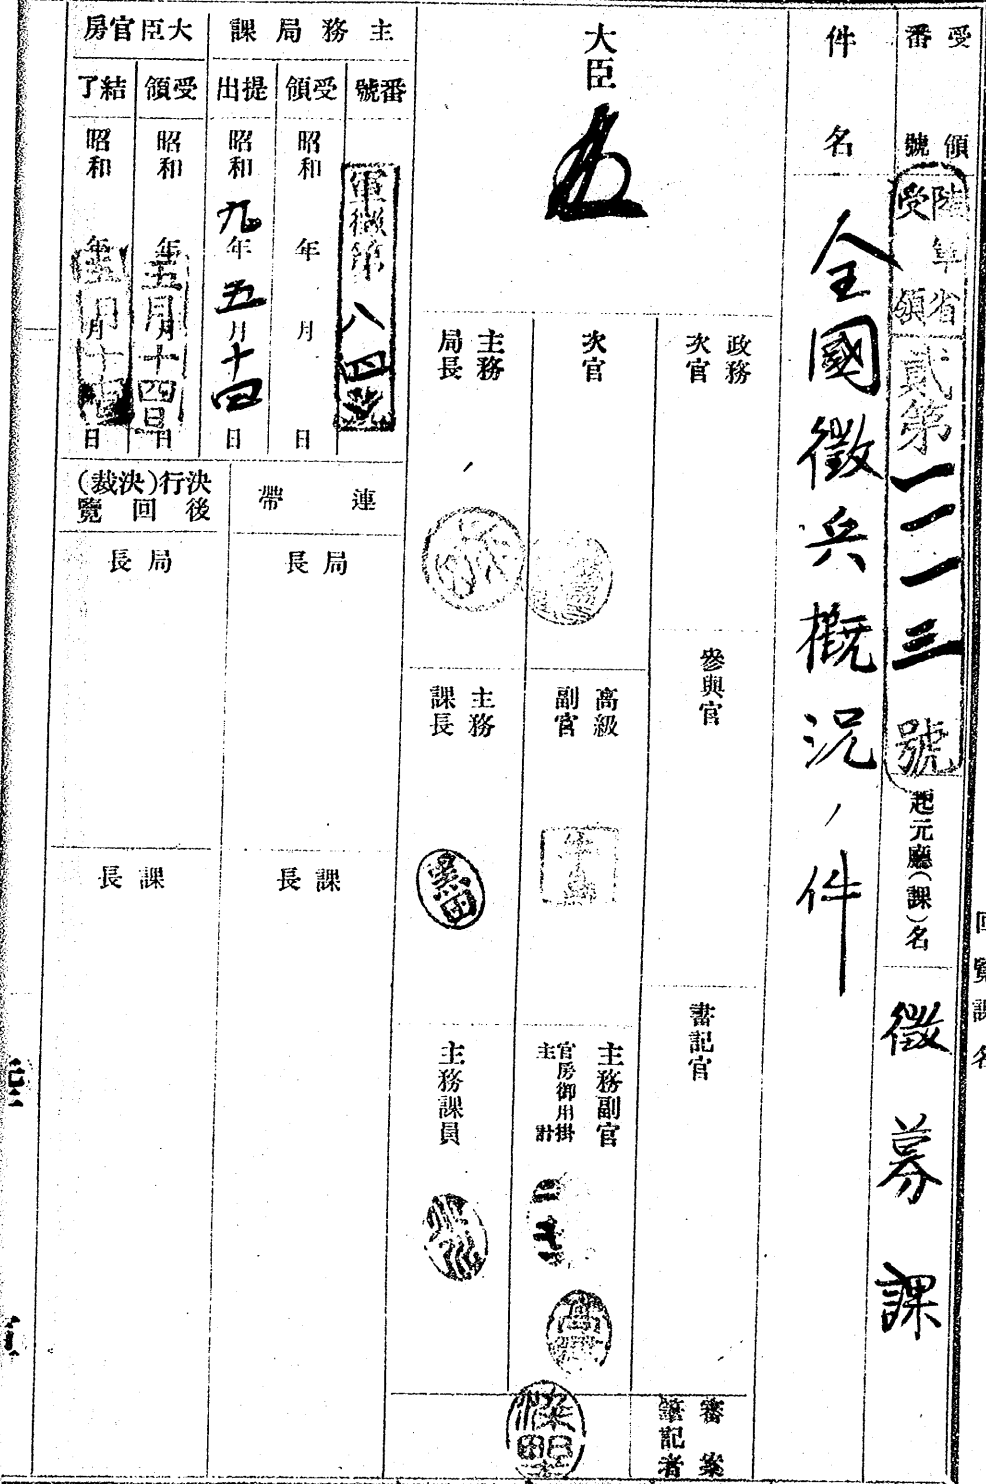 受領番號
陸軍省受領
貳第一一一三號
起元廳(課)名
徵募課
回覽課名
件名
全國徵兵概況ノ件
大臣
政務次官
次官
主務局長
參與官
高級副官
主務課長
黑田
書記官
主務副官
官房御用掛
主計
主務課員
審案
筆記者
主務局課
番號
軍徵第八四號
受領
昭和 年 月 日
提出
昭和九年五月十四日
大臣官房
受領
昭和 年五月十四日
結了
昭和 年 月 日
連帶
局長
課長
決行(決裁)後回覽
局長
課長